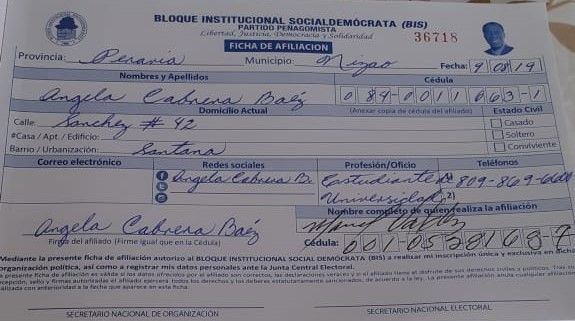 BLOQUE INSTITUCIONAL SOCIALDEMÓCRATA (BIS)
PARTIDO PEÑAGOMISTA
Libertad, Justicia, Democracia y Solidaridad
36718
FICHA DE AFILIACION
Provincia: Peravia Municipio: Nizao Fecha: 9/08/19
Nombres y Apellidos Cédula
Angela Cabrera Baéz 084-0011663-1
Domicilio Actual (Anexar copia de cédula del afiliado) Estado Civil
Calle: Sanchez # 42 Casado
#Casa / Apt. / Edificio: Soltero
Barrio / Urbanización: Santana Conviviente
Correo electrónico Redes sociales Profesión/Oficio Teléfonos
Angela Cabrera B. Estudiante 1) 809-869-
Universidad 2)
Nombre completo de quien realiza la afiliación
Angela Cabrera Baéz
Firma del afiliado (Firme igual que en la Cédula) Cédula: 001-0528168-7
Mediante la presente ficha de afiliación autorizo al BLOQUE INSTITUCIONAL SOCIAL DEMÓCRATA (BIS) a realizar mi inscripción única y exclusiva en
organización política, así como a registrar mis datos personales ante la Junta Central Electoral.
SECRETARIO NACIONAL DE ORGANIZACIÓN SECRETARIO NACIONAL ELECTORAL